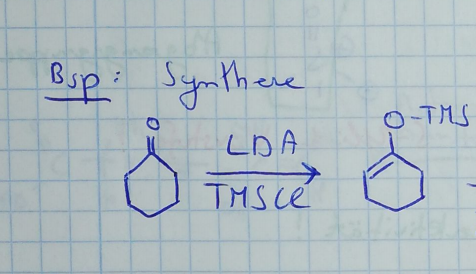 Bsp: Synthese
O O-TMS
LDA
TMSCl